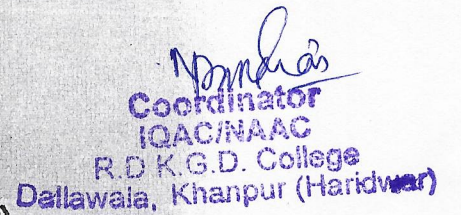 Coordinator
IQAC/NAAC
R.D K.G.D. College
Dallawala, Khanpur (Haridwar)